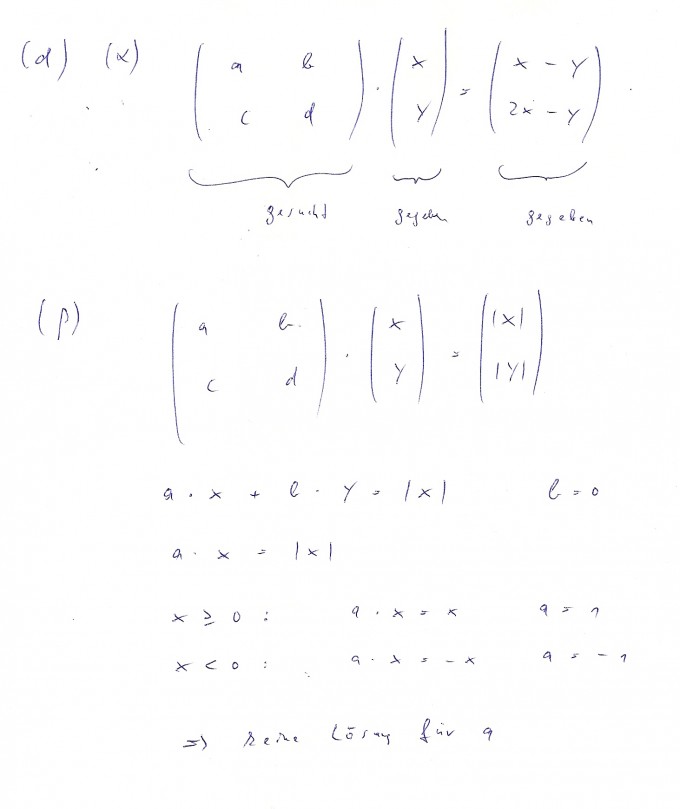 (d) (α) ( a b ) · ( x ) = ( x - y )
( c d ) ( y ) ( 2x - y )
gesucht gegeben gegeben
(β) ( a b ) · ( x ) = ( |x| )
( c d ) ( y ) ( |y| )
a · x + b · y = |x| b = 0
a · x = |x|
x ≥ 0 : a · x = x a = 1
x < 0 : a · x = - x a = - 1
=> keine Lösung für a